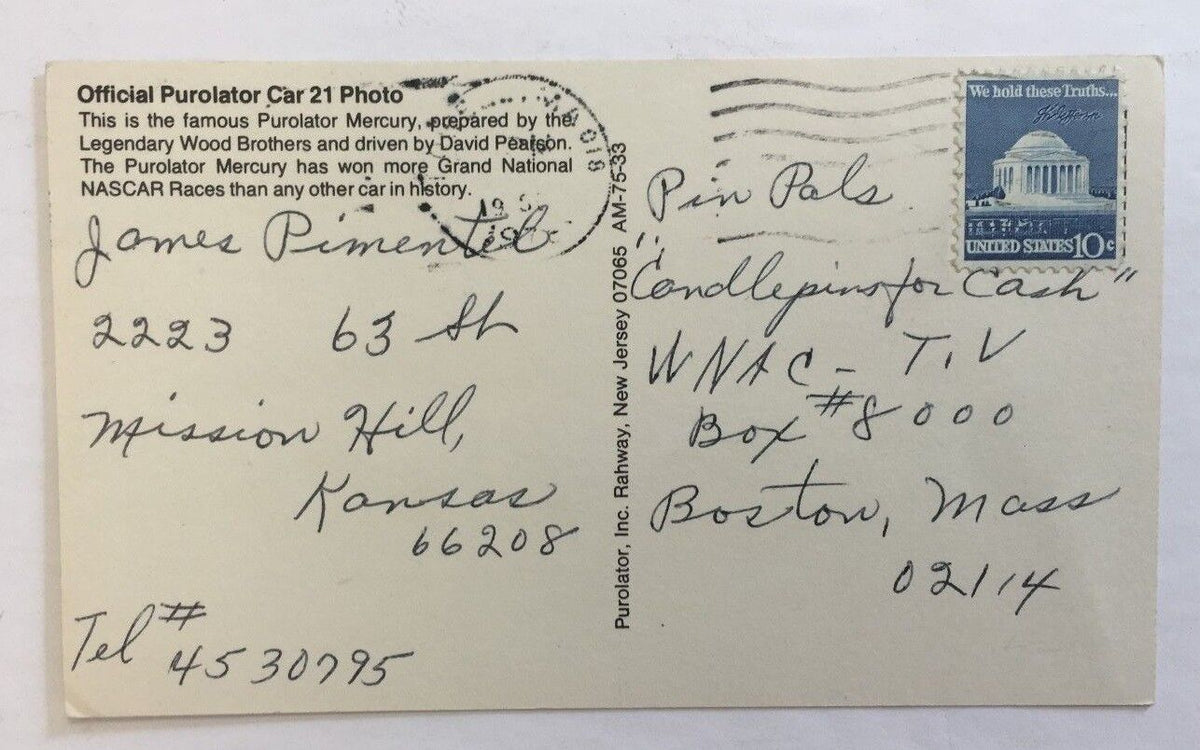 Official Purolator Car 21 Photo
This is the famous Purolator Mercury, prepared by the
Legendary Wood Brothers and driven by David Pearson.
The Purolator Mercury has won more Grand National
NASCAR Races than any other car in history.
James Pimentel
2223 63 St
Mission Hill,
Kansas
66208
Tel #
4530795
Purolator, Inc. Rahway, New Jersey 07065 AM-75-33
We hold these Truths...
UNITED STATES 10c
Pin Pals
"Candlepins for Cash"
WNAC - T.V
Box #8000
Boston, Mass
02114